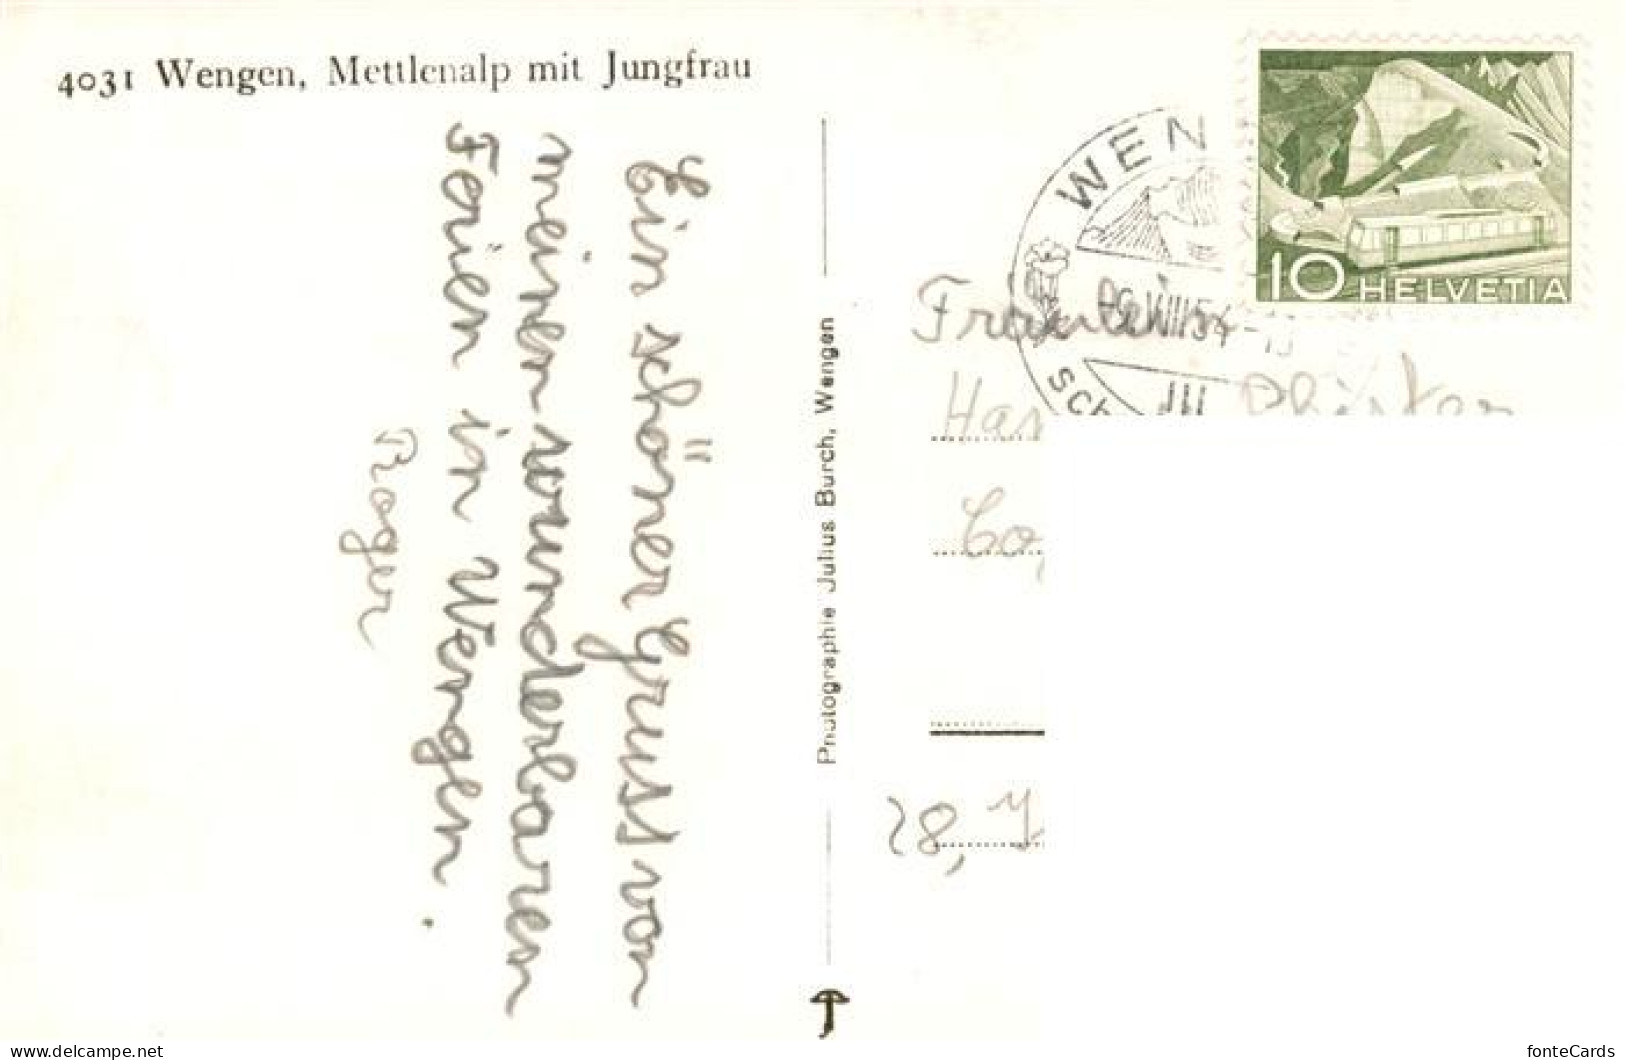 4031 Wengen, Mettlenalp mit Jungfrau
Ein schöner Gruss von
meinen wunderbaren
Ferien in Wengen.
Roger
Photographie Julius Burch, Wengen
WEN
VIII 54
SCH
10 HELVETIA
Fräulein
28,
www.delcampe.net
fonteCards